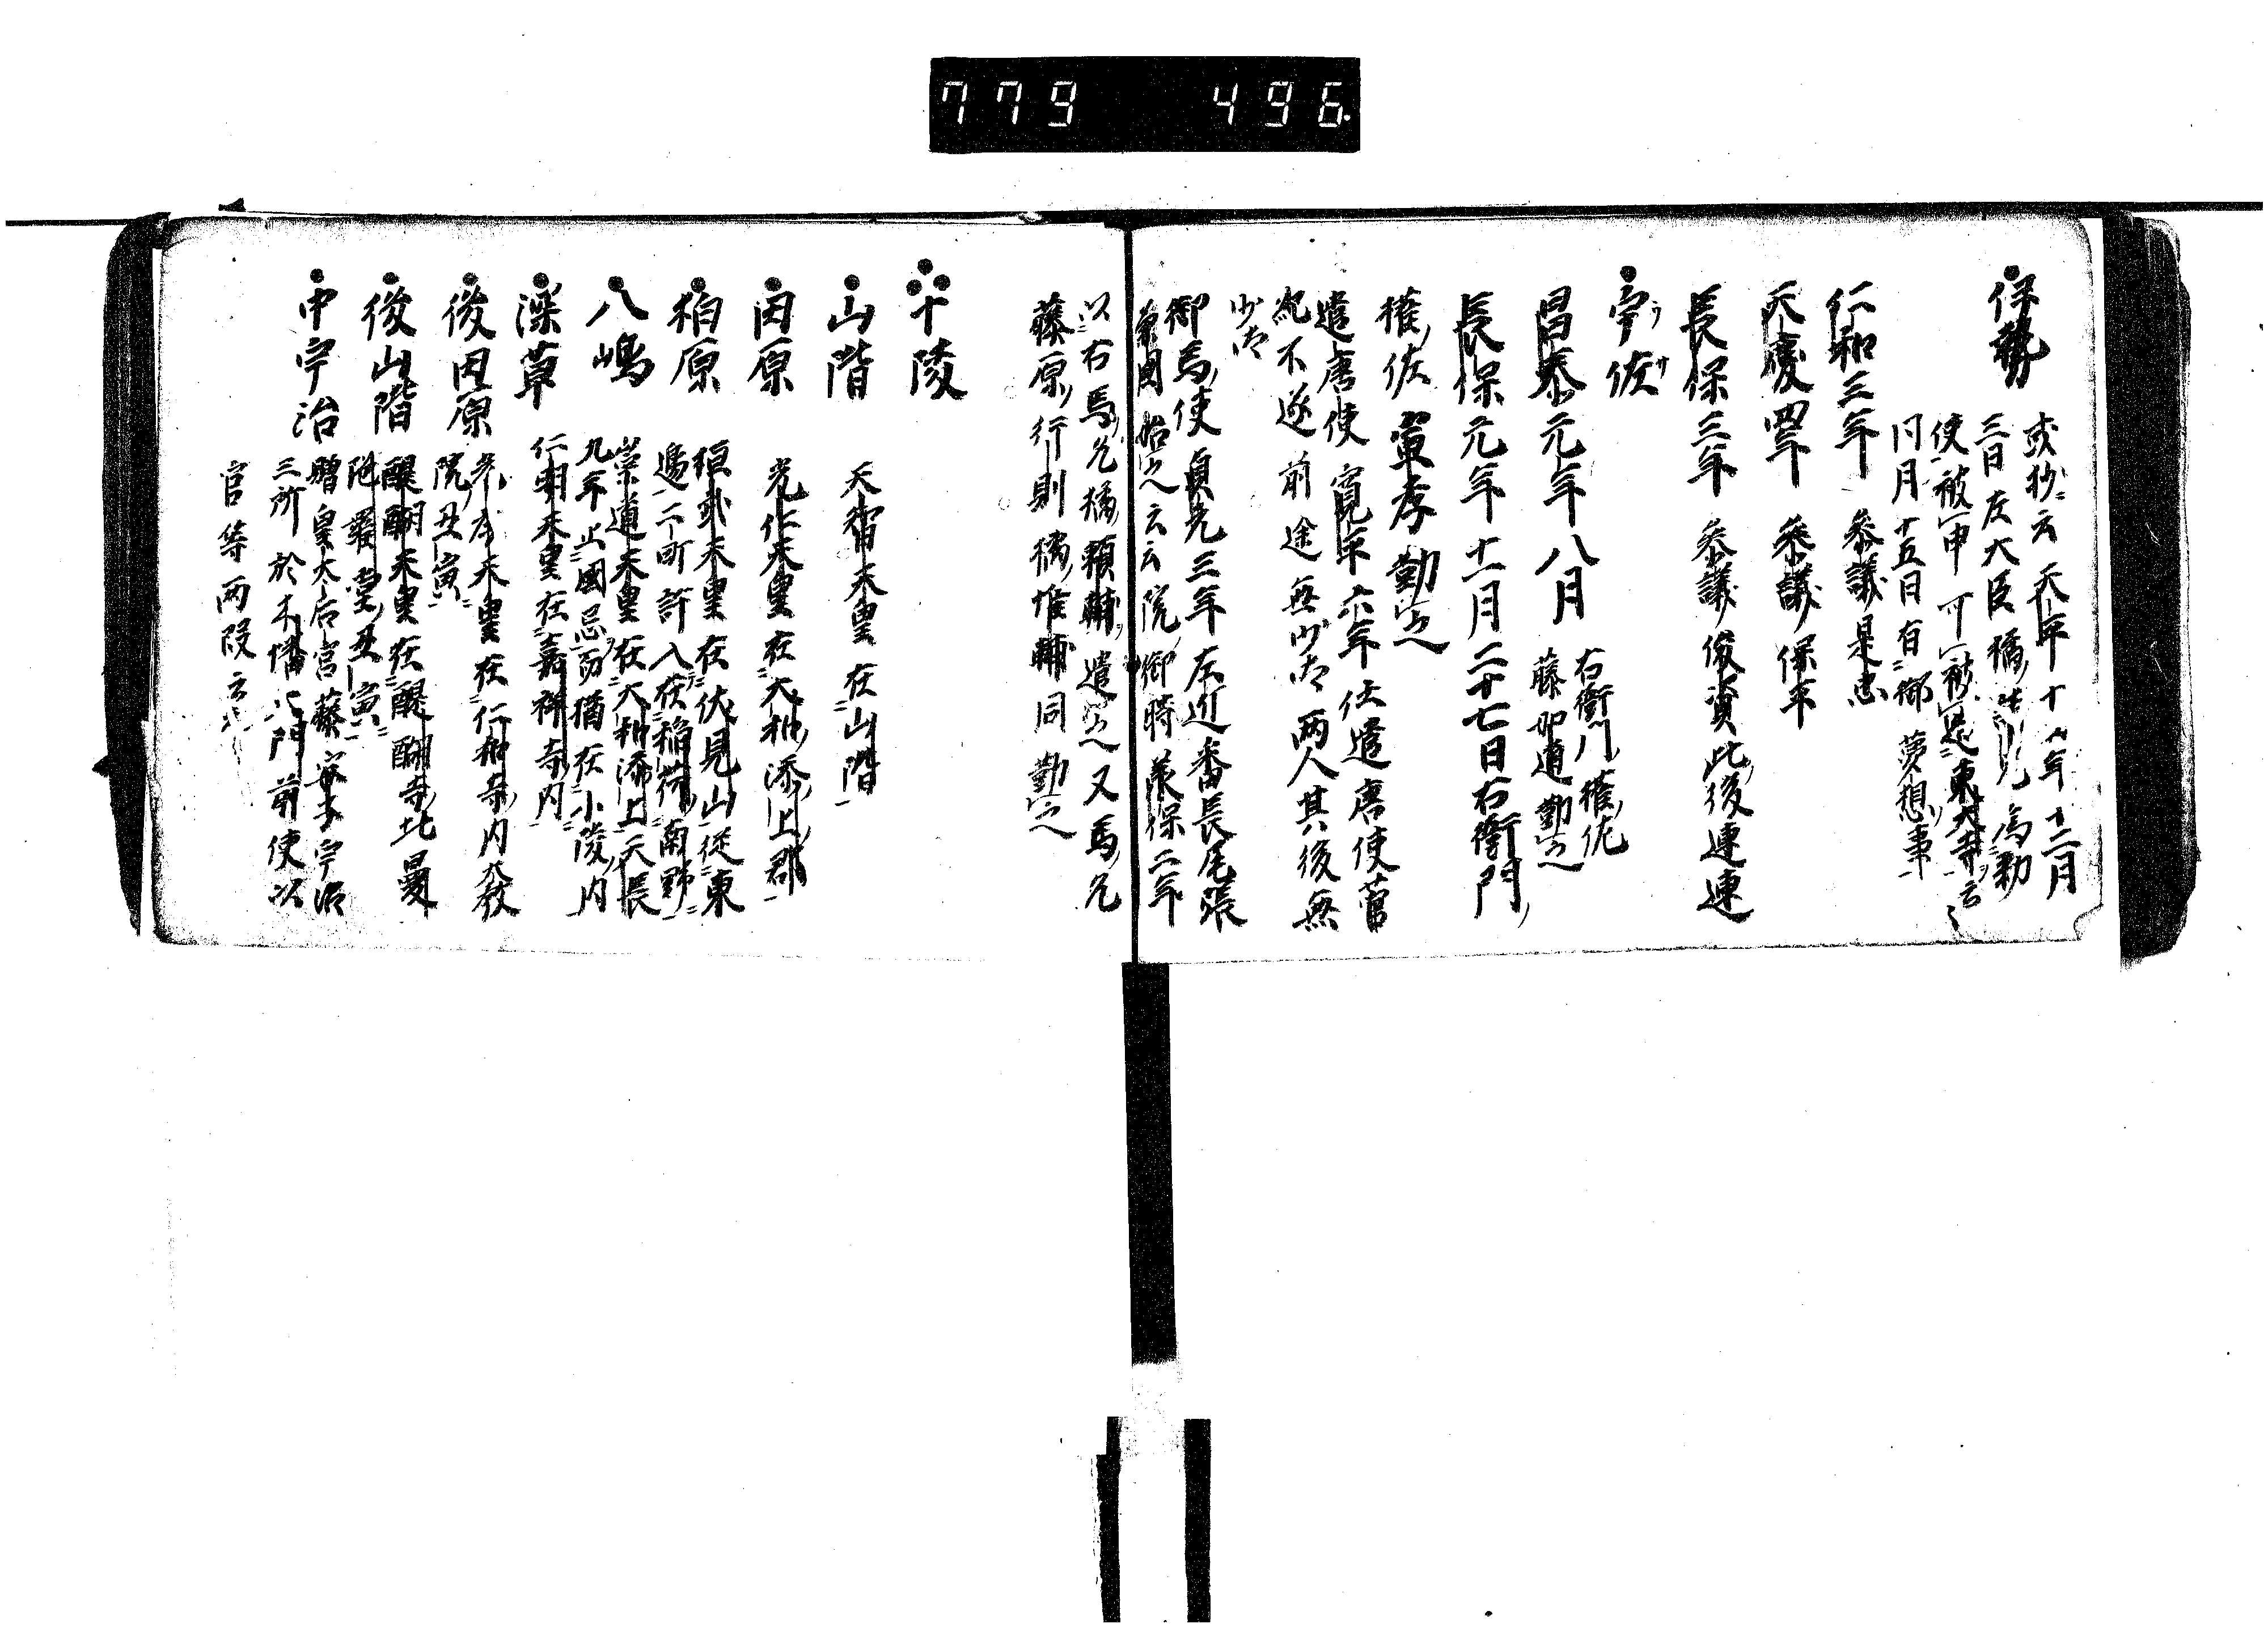 779 496
伊勢
或抄云天平十八年十二月
三日左大臣橘諸兄為勅
使被申可被是東大寺云〻
同月十五日有御夢想事
仁和三年 参議是忠
天慶四年 参議保平
長保三年 参議俊賢此後連連
宇佐
ウサ
昌泰元年八月
右衛門権佐
藤如道勤之
長保元年十一月二十七日右衛門
権佐宣孝勤之
遣唐使 寛平六年任遣唐使菅
紀不遂前途無 両人其後無
御馬使 貞光三年左近番長尾張
兼国始之云云院御時長保二年
以右馬允橘頼輔遣之又馬允
藤原行則橘惟輔同勤之
十陵
山階 天智天皇在山階
田原 光仁天皇在大和添上郡
柏原 桓武天皇在伏見山従東
邊二町許入在稲荷南野
八嶋 崇道天皇在大和添上天長
九年止國忌而猶在小陵内
深草 仁明天皇在嘉祥寺内
後田原 光孝天皇在仁和寺内大教
院丑寅
後山階 醍醐天皇在醍醐寺北曼
陀羅堂丑寅
中宇治 贈皇太后宮藤安子宇治
三所於木幡大門前使以
官等両段云々